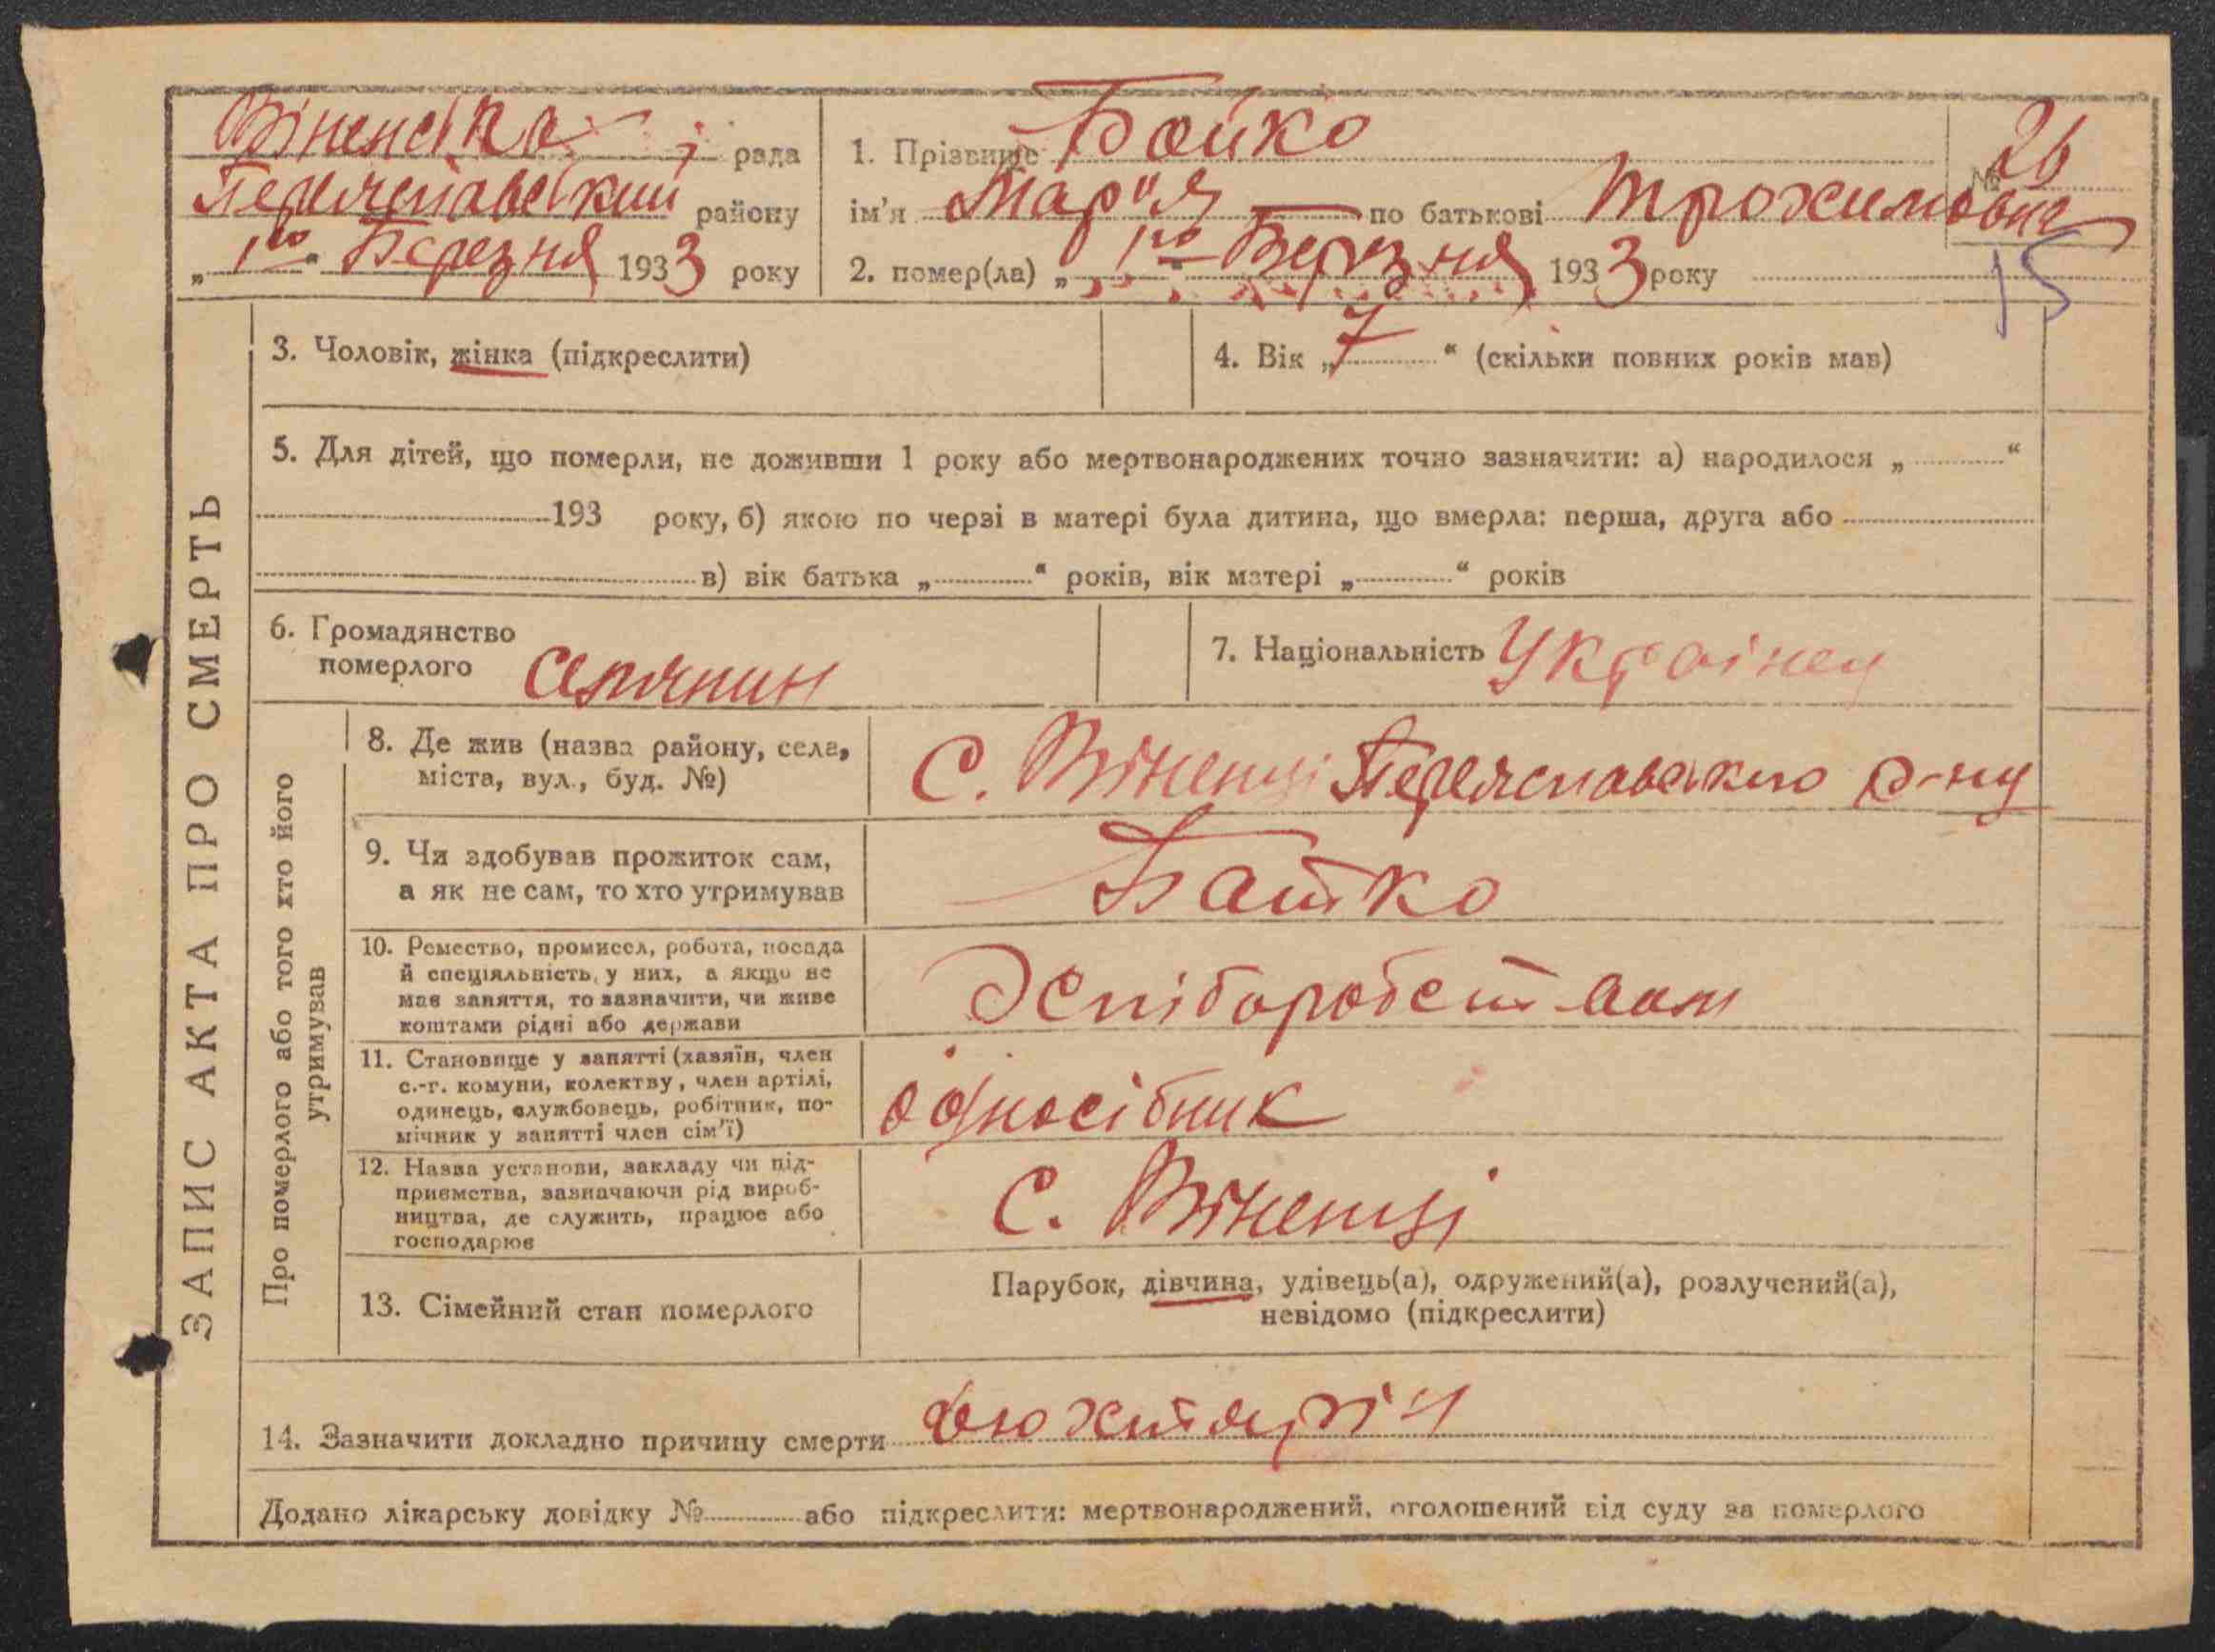 Віненська рада
Переяславський району
„1го" Березня 1933 року
1. Прізвище Бойко
№ 26
ім'я Мар"я — по батькові Трохимовна
2. помер(ла) „1го" Березня 1933 року
15
ЗАПИС АКТА ПРО СМЕРТЬ
3. Чоловік, жінка (підкреслити)
4. Вік „7" (скільки повних років мав)
5. Для дітей, що померли, не доживши 1 року або мертвонароджених точно зазначити: а) народилося „ "
193 року, б) якою по черзі в матері була дитина, що вмерла: перша, друга або
в) вік батька „ " років, вік матері „ " років
6. Громадянство
померлого Селянин
7. Національність Українец
Про померлого або того хто його
утримував
8. Де жив (назва району, села,
міста, вул., буд. №)
С. Віненці Переяславского р-ну
9. Чи здобував прожиток сам,
а як не сам, то хто утримував
Батко
10. Ремество, промисел, робота, посада
й спеціяльність у них, а якщо не
має заняття, то зазначити, чи живе
коштами рідні або держави
11. Становище у занятті (хазяїн, член
с.-г. комуни, колектву, член артілі,
одинець, службовець, робітник, по-
мічник у занятті член сім'ї)
односібник
12. Назва установи, закладу чи під-
приємства, зазначаючи рід вироб-
ництва, де служить, працює або
господарює
С. Віненці
13. Сімейний стан померлого
Парубок, дівчина, удівець(а), одружений(а), розлучений(а),
невідомо (підкреслити)
14. Зазначити докладно причину смерти
Додано лікарську довідку № або підкреслити: мертвонароджений, оголошений від суду за померлого